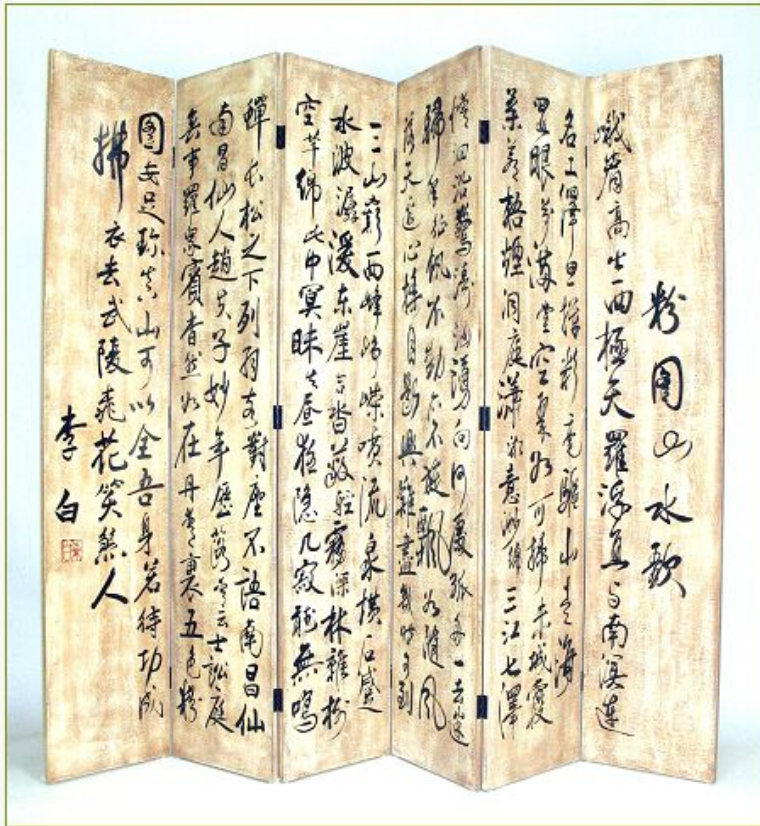 粉图山水歌
峨眉高出西極天羅浮直与南溟連
名工繹思揮彩毫驅山走海
置眼前滿堂空翠如可掃赤城霞
氣蒼梧煙洞庭瀟湘意渺綿三江七澤
情洄沿驚濤洶湧向何處孤舟一去迷
歸年征帆不動亦不旋飄如隨風
落天邊心搖目斷興難盡幾時可到
三山巔西峰崢嶸噴流泉橫石蹙
水波潺湲东崖合沓蔽輕霧深林雜樹
空芊綿此中冥昧失昼夜隐几寂聽無鳴
蟬长松之下列羽客對座不語南昌仙
南昌仙人趙夫子妙年歷落青云士訟庭
無事羅衆賓杳然如在丹青裏五色粉
图安足珍真山可以全吾身若待功成
拂衣去武陵桃花笑煞人
李白